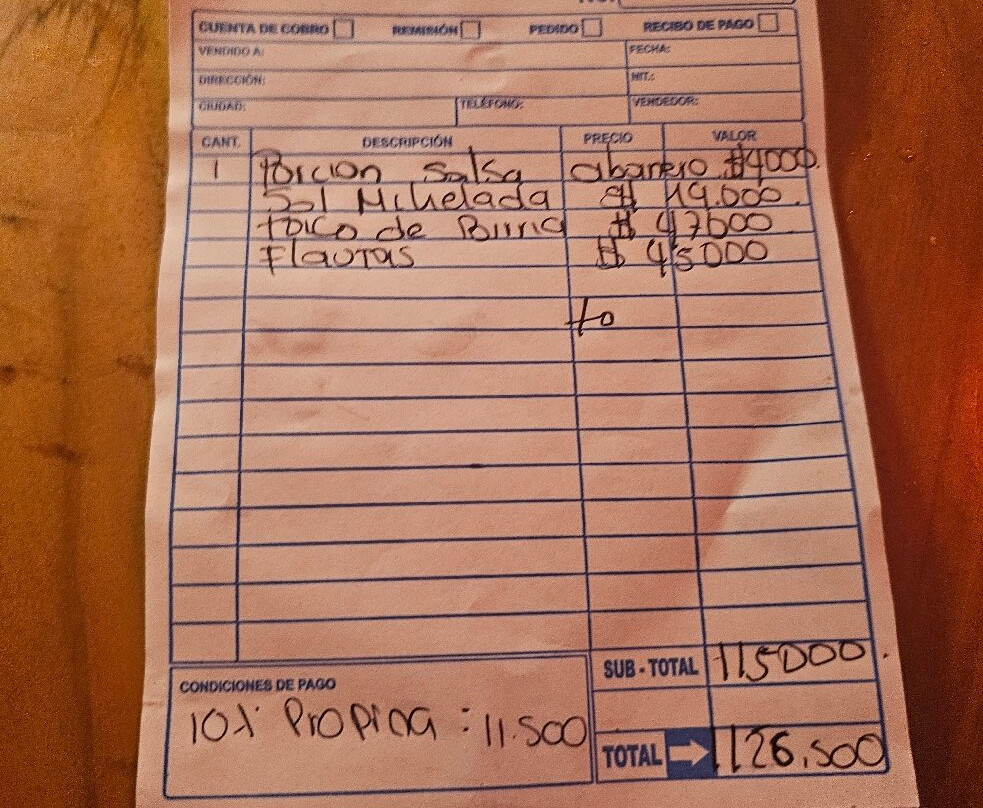 CUENTA DE COBRO REMISIÓN PEDIDO RECIBO DE PAGO
VENDIDO A: FECHA:
DIRECCIÓN: NIT.:
CIUDAD: TELÉFONO: VENDEDOR:
CANT. DESCRIPCIÓN PRECIO VALOR
1 Porcion Salsa abanero $4000.
Sol Michelada $ 19.000.
Toico de Birria $ 47000.
Flautas $ 45000
to
SUB - TOTAL 115000.
CONDICIONES DE PAGO
10% Propina : 11.500
TOTAL 126.500